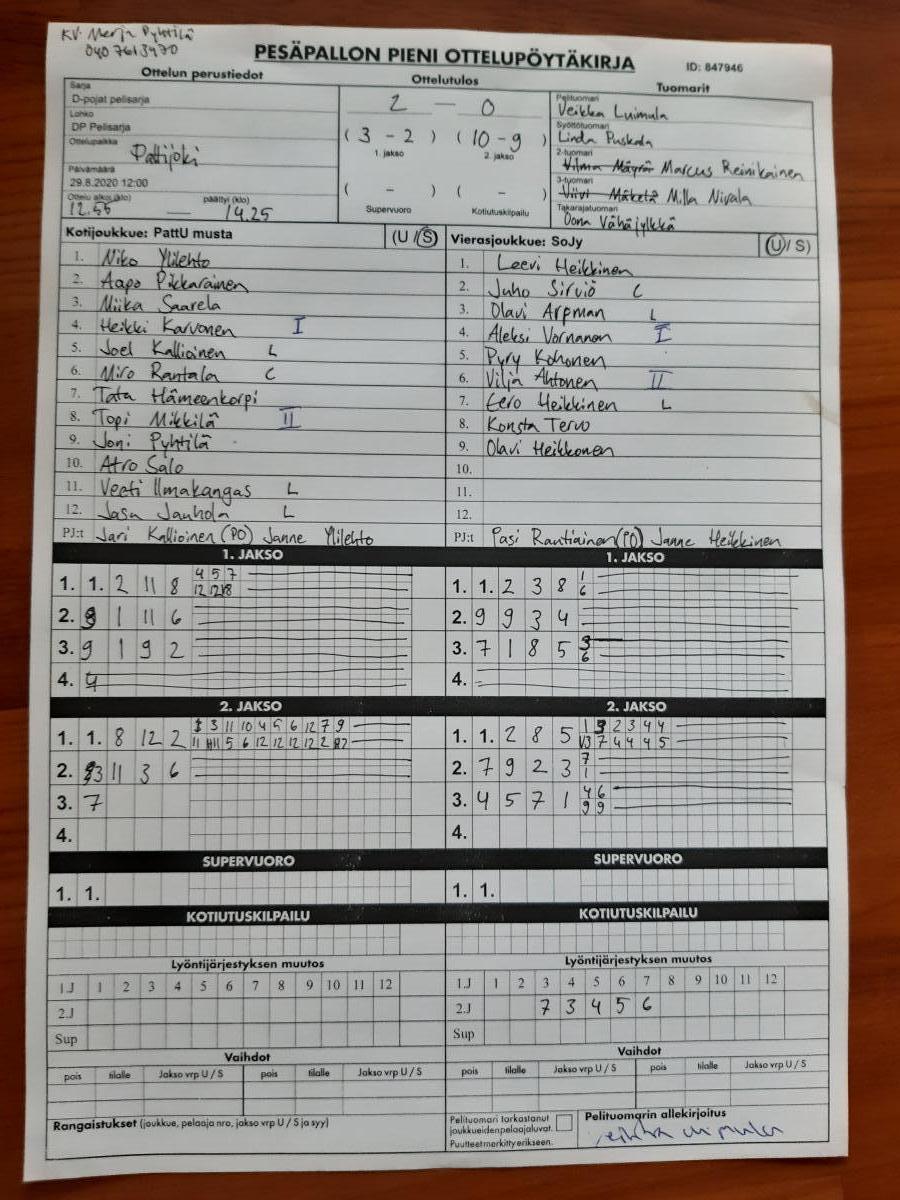 KV. Merja Pyhtilä
040 7613970
PESÄPALLON PIENI OTTELUPÖYTÄKIRJA
ID: 847946
Ottelun perustiedot
Ottelutulos
Tuomarit
Sarja
D-pojat pelisarja
Lohko
DP Pelisarja
Ottelupaikka
Pattijoki
Päivämäärä
29.8.2020 12:00
Ottelu alkoi (klo)
12.55 — 14.25
päättyi (klo)
2 — 0
( 3 - 2 ) ( 10 - 9 )
1. jakso 2. jakso
( - ) ( - )
Supervuoro Kotiutuskilpailu
Pelituomari
Veikka Luimula
Syöttötuomari
Linda Puskala
2-tuomari
Vilma Mäyrär Marcus Reinikainen
3-tuomari
Viivi Mäketä Milla Nivala
Takarajatuomari
Oona Vähäjylkkä
Kotijoukkue: PattU musta (U / S)
1. Niko Ylilehto
2. Aapo Pikkarainen
3. Miika Saarela
4. Heikki Karvonen I
5. Joel Kallioinen L
6. Miro Rantala C
7. Tatu Hämeenkorpi
8. Topi Mikkilä II
9. Joni Pyhtilä
10. Atro Salo
11. Veeti Ilmakangas L
12. Jasu Jauhola L
PJ:t Jari Kallioinen (PO) Janne Ylilehto
Vierasjoukkue: SoJy (U / S)
1. Leevi Heikkinen
2. Juho Sirviö C
3. Olavi Arpman L
4. Aleksi Vornanen I
5. Pyry Kohonen
6. Vilja Ahtonen II
7. Eero Heikkinen L
8. Konsta Tervo
9. Olavi Heikkonen
10.
11.
12.
PJ:t Pasi Rautiainen (PO) Janne Heikkinen
1. JAKSO
1. 1. 2 11 8 4 5 7
12 12 8
2. 8 1 11 6
3. 9 1 9 2
4. 4
1. JAKSO
1. 1. 2 3 8 1
6
2. 9 9 3 4
3. 7 1 8 5 3
6
4.
2. JAKSO
1. 1. 8 12 2 1 3 11 10 4 5 6 12 7 9
11 11 5 6 12 12 12 12 2 12
2. 3 11 3 6
3. 7
4.
2. JAKSO
1. 1. 2 8 5 1 3 2 3 4 4
3 7 4 4 4 5
2. 7 9 2 3 7
1
3. 4 5 7 1 4 6
9 9
4.
SUPERVUORO
1. 1.
SUPERVUORO
1. 1.
KOTIUTUSKILPAILU
KOTIUTUSKILPAILU
Lyöntijärjestyksen muutos
1.J 1 2 3 4 5 6 7 8 9 10 11 12
2.J
Sup
Lyöntijärjestyksen muutos
1.J 1 2 3 4 5 6 7 8 9 10 11 12
2.J 7 3 4 5 6
Sup
Vaihdot
pois tilalle Jakso vrp U / S pois tilalle Jakso vrp U / S
Vaihdot
pois tilalle Jakso vrp U / S pois tilalle Jakso vrp U / S
Rangaistukset (joukkue, pelaaja nro, jakso vrp U / S ja syy)
Pelituomari tarkastanut
joukkueidenpelaajaluvat.
Puutteet merkitty erikseen.
Pelituomarin allekirjoitus